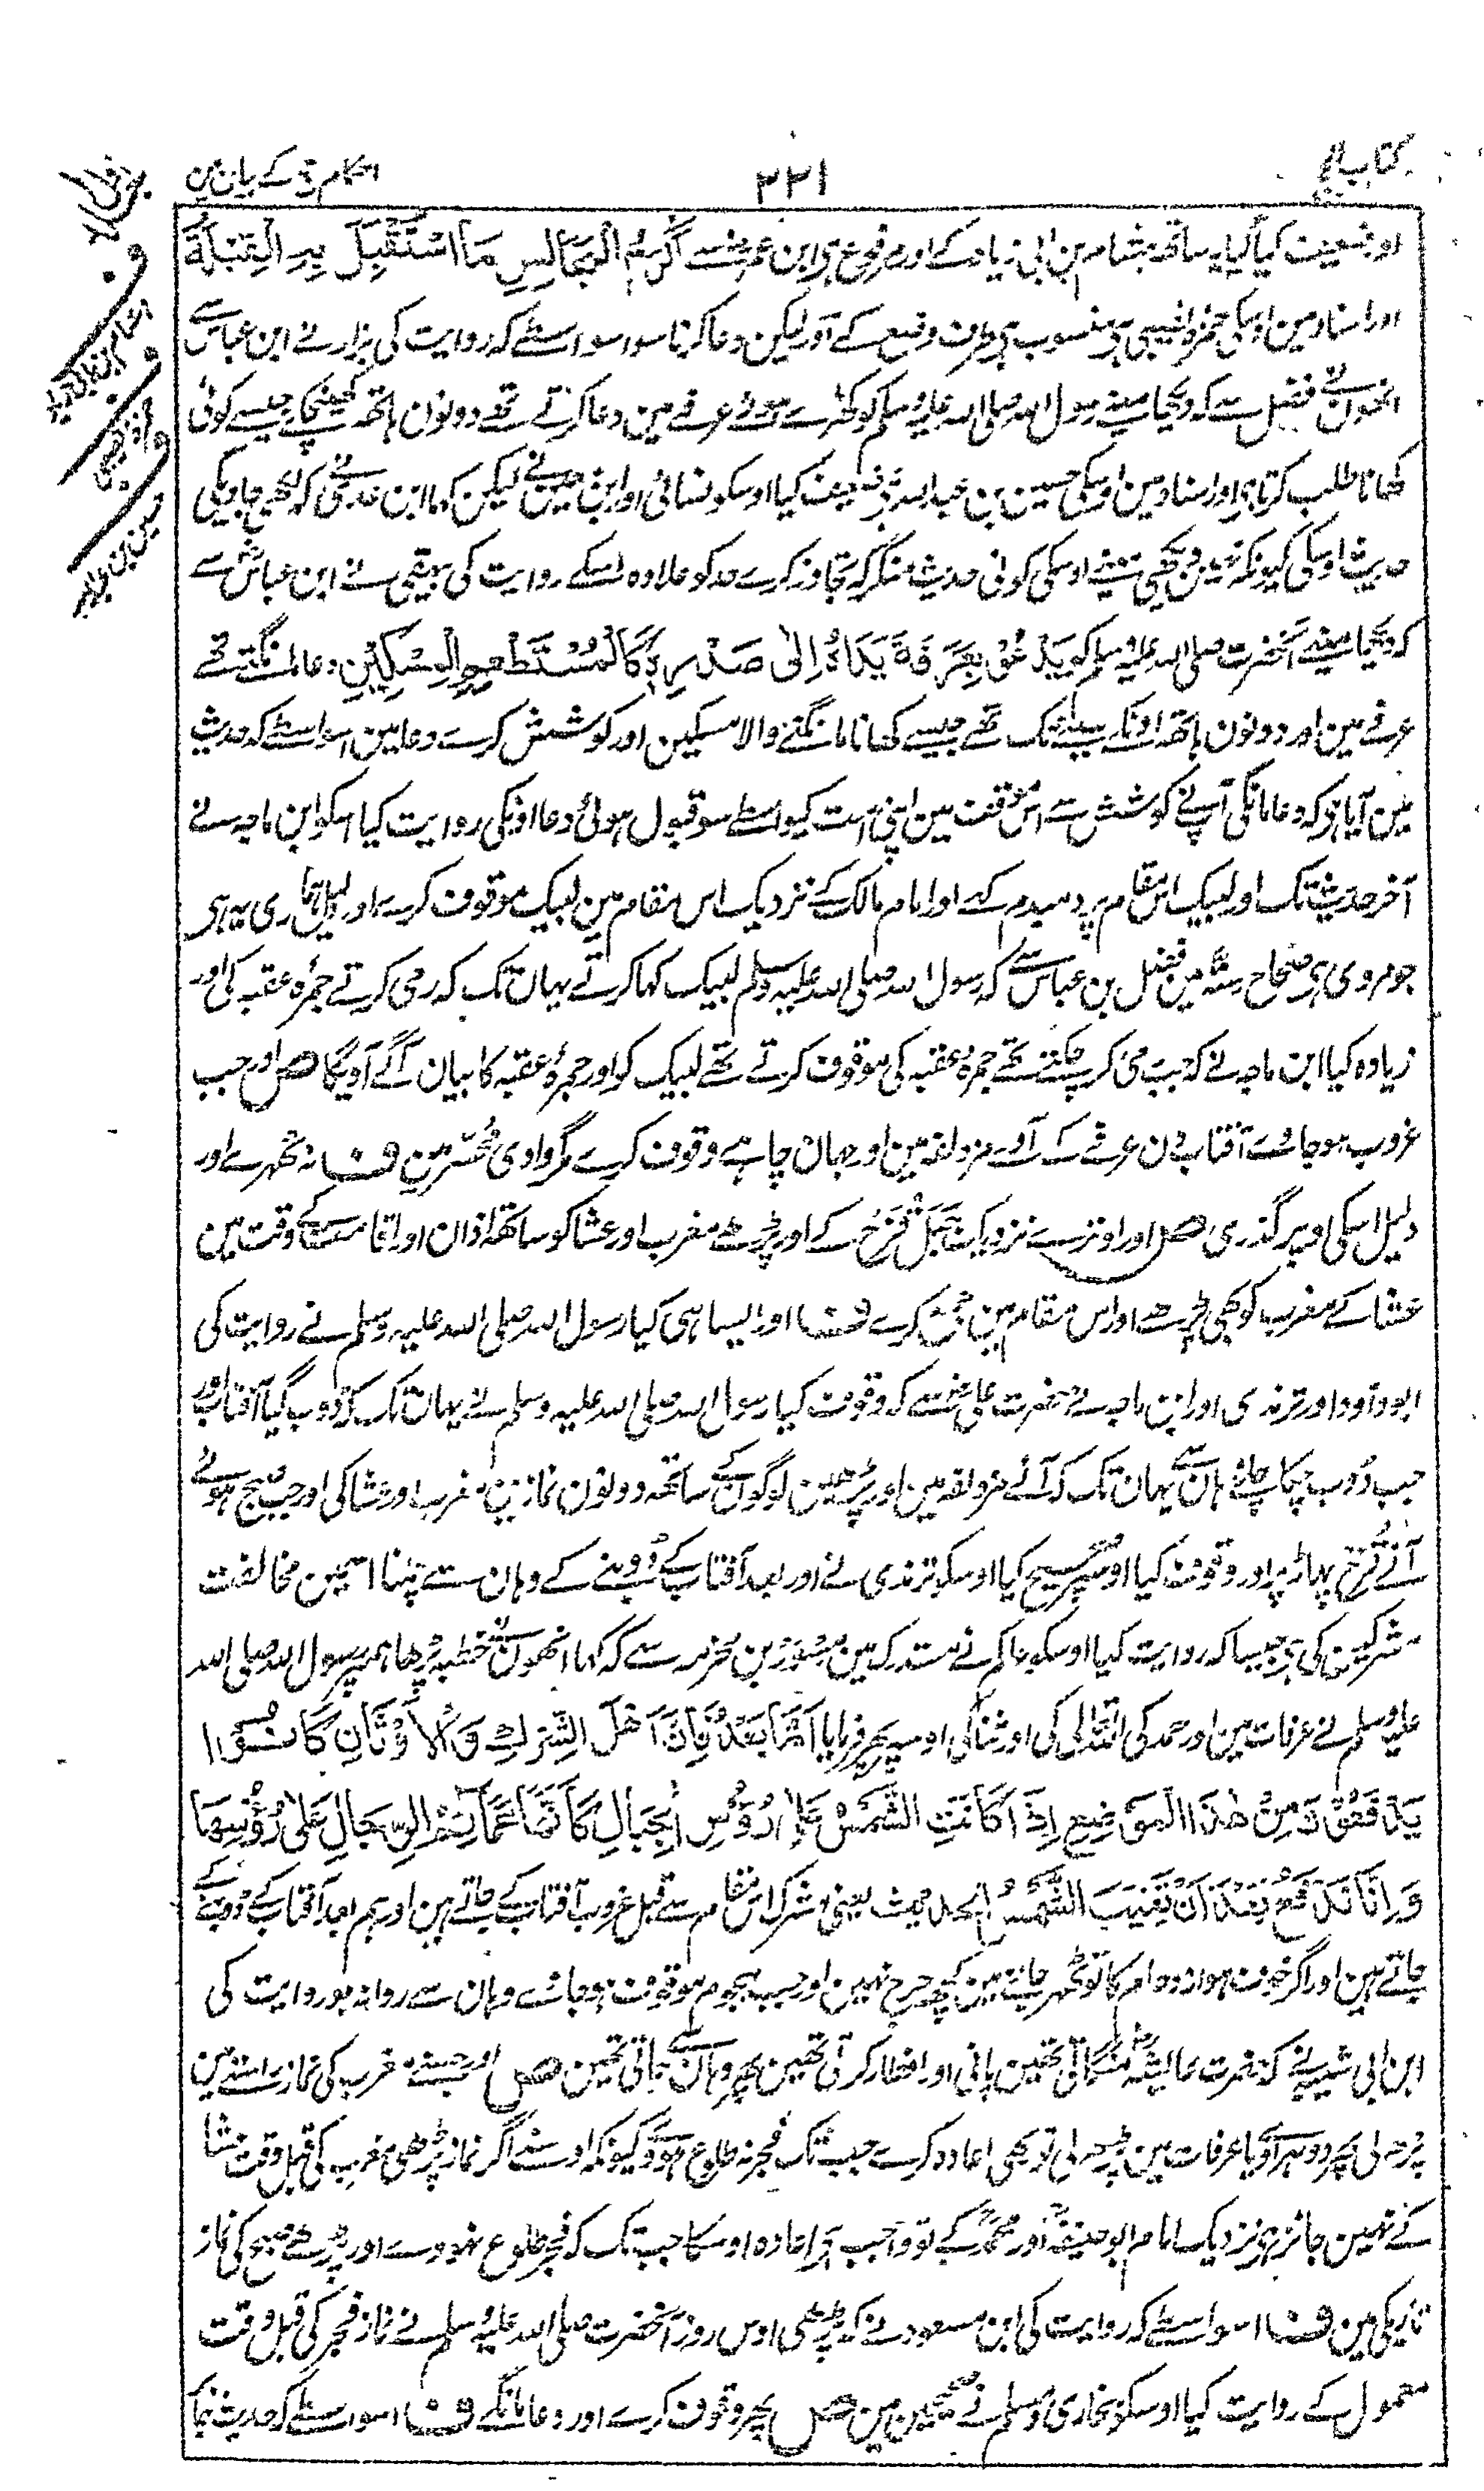 کتاب الحج
۲۲۱
احکام حج کے بیان مین
اور ضعیف کیا گیا یہ ساتھ ہشام بن ابی زیاد کے اور مرفوع ہی ابن عمرؓ سے اَكْرَمُ الْمَجَالِسِ مَا اسْتُقْبِلَ بِهِ الْقِبْلَةُ
اور اسناد مین اوسکی حمزہ نصیبی ہی منسوب ہی طرف وضع کے اور لیکن دعا کرنا سو اسواسطے کہ روایت کی بزار نے ابن عباسؓ سے
انھون نے فضل سے کہ دیکھا مینے رسول اللہ صلی اللہ علیہ وسلم کو کھڑے ہوئے عرفے مین دعا کرتے تھے دونون ہاتھ کھینچے جیسے کوئی
کھانا طلب کرتا ہی اور اسناد مین اوسکی حسین بن عبد اللہ ہی ضعیف کیا اوسکو نسائی اور ابن معین نے لیکن کہا ابن عدی نے کہ لکھی جاویگی
حدیث اوسکی کیونکہ نہین دیکھی مینے اوسکی کوئی حدیث منکر کہ تجاوز کرے حد کو علاوہ اسکے روایت کی بیہقی نے ابن عباسؓ سے
کہ دیکھا مینے آنحضرت صلی اللہ علیہ وسلم کو يَدْعُوْ بِعَرَفَةَ يَدَاهُ اِلٰى صَدْرِهٖ كَالْمُسْتَطْعِمِ الْمِسْكِيْنِ دعا مانگتے تھے
عرفے مین اور دونون ہاتھ اونکے سینے تک تھے جیسے کھانا مانگنے والا مسکین اور کوشش کرے دعا مین اسواسطے کہ حدیث
مین آیا ہی کہ دعا مانگی آپنے کوشش سے اس موقف مین اپنی امت کیواسطے سو قبول ہوئی دعا اونکی روایت کیا اسکو ابن ماجہ نے
آخر حدیث تک اور لبیک اس مقام پر دمبدم کہے اور امام مالک کے نزدیک اس مقام مین لبیک موقوف کرے اور دلیل ہماری یہ ہی
جو مروی ہی صحاح ستہ مین فضل بن عباسؓ سے کہ رسول اللہ صلی اللہ علیہ وسلم لبیک کہا کرتے یہان تک کہ رمی کرتے جمرہ عقبہ کی اور
زیادہ کیا ابن ماجہ نے کہ جب رمی کر چکتے تھے جمرۂ عقبہ کی موقوف کرتے تھے لبیک کو اور جمرۂ عقبہ کا بیان آگے آویگا ص اور جب
غروب ہو جاوے آفتاب دن عرفے کے آوے مزدلفہ مین اور جہان چاہے وقوف کرے مگر وادی محسّر مین ف نہ ٹھہرے اور
دلیل اسکی اوپر گذری ص اور اوترے نزدیک جَبَلِ قُزَح کے اور پڑھے مغرب اور عشا کو ساتھ اذان اور اقامت کے وقت مین
عشا کے مغرب کو بھی پڑھے اور اس مقام مین جمع کرے ف اور ایسا ہی کیا رسول اللہ صلی اللہ علیہ وسلم نے روایت کی
ابو داود اور ترمذی اور ابن ماجہ نے حضرت علیؓ سے کہ وقوف کیا رسول اللہ صلی اللہ علیہ وسلم نے یہان تک کہ ڈوب گیا آفتاب اور
جب ڈوب چکا چلے وہان سے یہان تک کہ آئے مزدلفہ مین اور پڑھین لوگون کے ساتھ دونون نمازین مغرب اور عشا کی اور جب صبح ہوئے
آئے قزح پہاڑ پر اور وقوف کیا اوسپر صحیح کیا اوسکو ترمذی نے اور بعد آفتاب کے ڈوبنے کے وہان سے چلنا اسمین مخالفت
مشرکین کی ہی جیسا کہ روایت کیا اوسکو حاکم نے مستدرک مین مِسْوَر بن مخرمہ سے کہ کہا انھون نے خطبہ پڑھا ہمپر رسول اللہ صلی اللہ
علیہ وسلم نے عرفات مین اور حمد کی اللہ تعالی کی اور ثنا کی اوسپر پھر فرمایا اَمَّا بَعْدُ فَاِنَّ اَهْلَ الشِّرْكِ وَالْاَوْثَانِ كَانُوْا
يَدْفَعُوْنَ مِنْ هٰذَا الْمَوْضِعِ اِذَا كَانَتِ الشَّمْسُ عَلٰى رُؤُسِ الْجِبَالِ كَاَنَّهَا عَمَائِمُ الرِّجَالِ عَلٰى رُؤُسِهَا
وَاِنَّا نَدْفَعُ بَعْدَ اَنْ تَغِيْبَ الشَّمْسُ الحدیث یعنی مشرک اس مقام سے قبل غروب آفتاب کے جاتے ہین اور ہم بعد آفتاب کے ڈوبنے کے
جاتے ہین اور اگر خوف ہو ازدحام کا تو ٹھہر جانے مین کچھ حرج نہین اور جب ہجوم موقوف ہو جائے وہان سے روانہ ہو روایت کی
ابن ابی شیبہ نے کہ حضرت عائشہؓ منگاتی تھین پانی اور افطار کرتی تھین پھر وہان سے جاتی تھین ص اور جسنے مغرب کی نماز راستے مین
پڑھ لی پھر دوہراوے یا عرفات مین پڑھ لی تو بھی اعادہ کرے جب تک فجر نہ طلوع ہووے کیونکہ اوسنے اگر نماز پڑھی مغرب کی قبل وقت عشا
کے نہین جائز ہی نزدیک امام ابو حنیفہؒ اور محمدؒ کے تو واجب ہی اعادہ اوسکا جب تک کہ فجر طلوع نہووے اور پڑھے صبح کی نماز
تاریکی مین ف اسواسطے کہ روایت کی ابن مسعود نے کہ پڑھی اوس روز آنحضرت صلی اللہ علیہ وسلم نے نماز فجر کی قبل وقت
معمول کے روایت کیا اوسکو بخاری و مسلم نے صحیحین مین ص پھر وقوف کرے اور دعا مانگے ف اسواسطے کہ حدیث